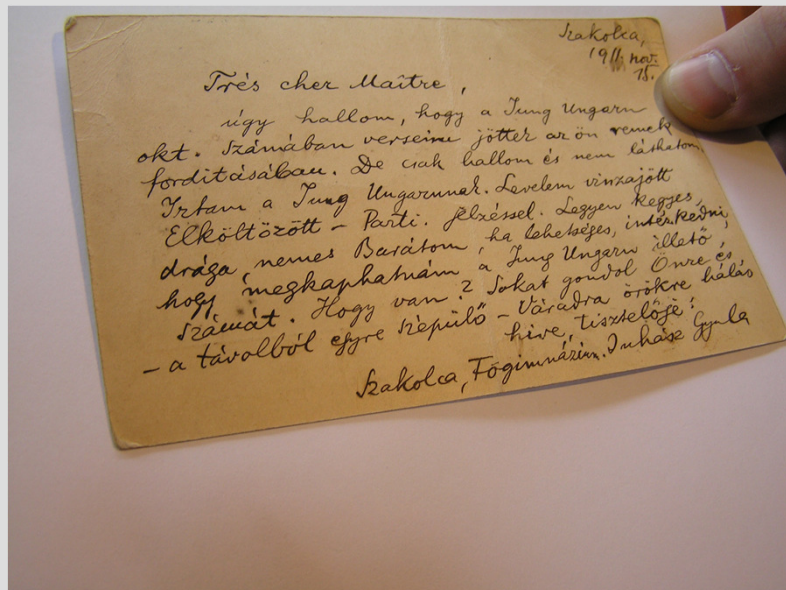 Szakolca,
1911. nov.
15.
Très cher Maître,
úgy hallom, hogy a Jung Ungarn
okt. számában verseim jöttek az ön remek
fordításában. De csak hallom és nem láthatom.
Irtam a Jung Ungarnnak. Levelem visszajött
Elköltözött – Parti. jelzéssel. Legyen kegyes,
drága, nemes Barátom, ha lehetséges, intézkedni,
hogy megkaphatnám a Jung Ungarn illető
számát. Hogy van? Sokat gondol Önre és
– a távolból egyre szépülő – Váradra örökre hálás
hive, tisztelője:
Szakolca, Főgimnázium. Juhász Gyula